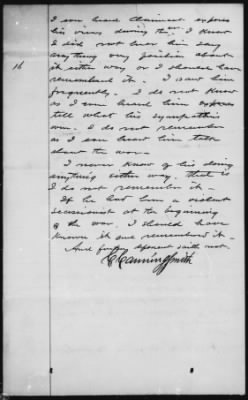 I ever heard Claimant express
his views during the war. I know
I did not hear him say
anything very positive about
16
it either way or I should have
remembered it. I saw him
frequently. I do not know
as I ever heard him express
tell what his sympathies
were. I do not remember
as I ever heard him talk
about the war.
I never knew of his doing
anything either way, that is
I do not remember it.
If he had been a violent
secessionist at the beginning
of the war, I should have
known it and remembered it.
And further deponent saith not.
C Canning Smith